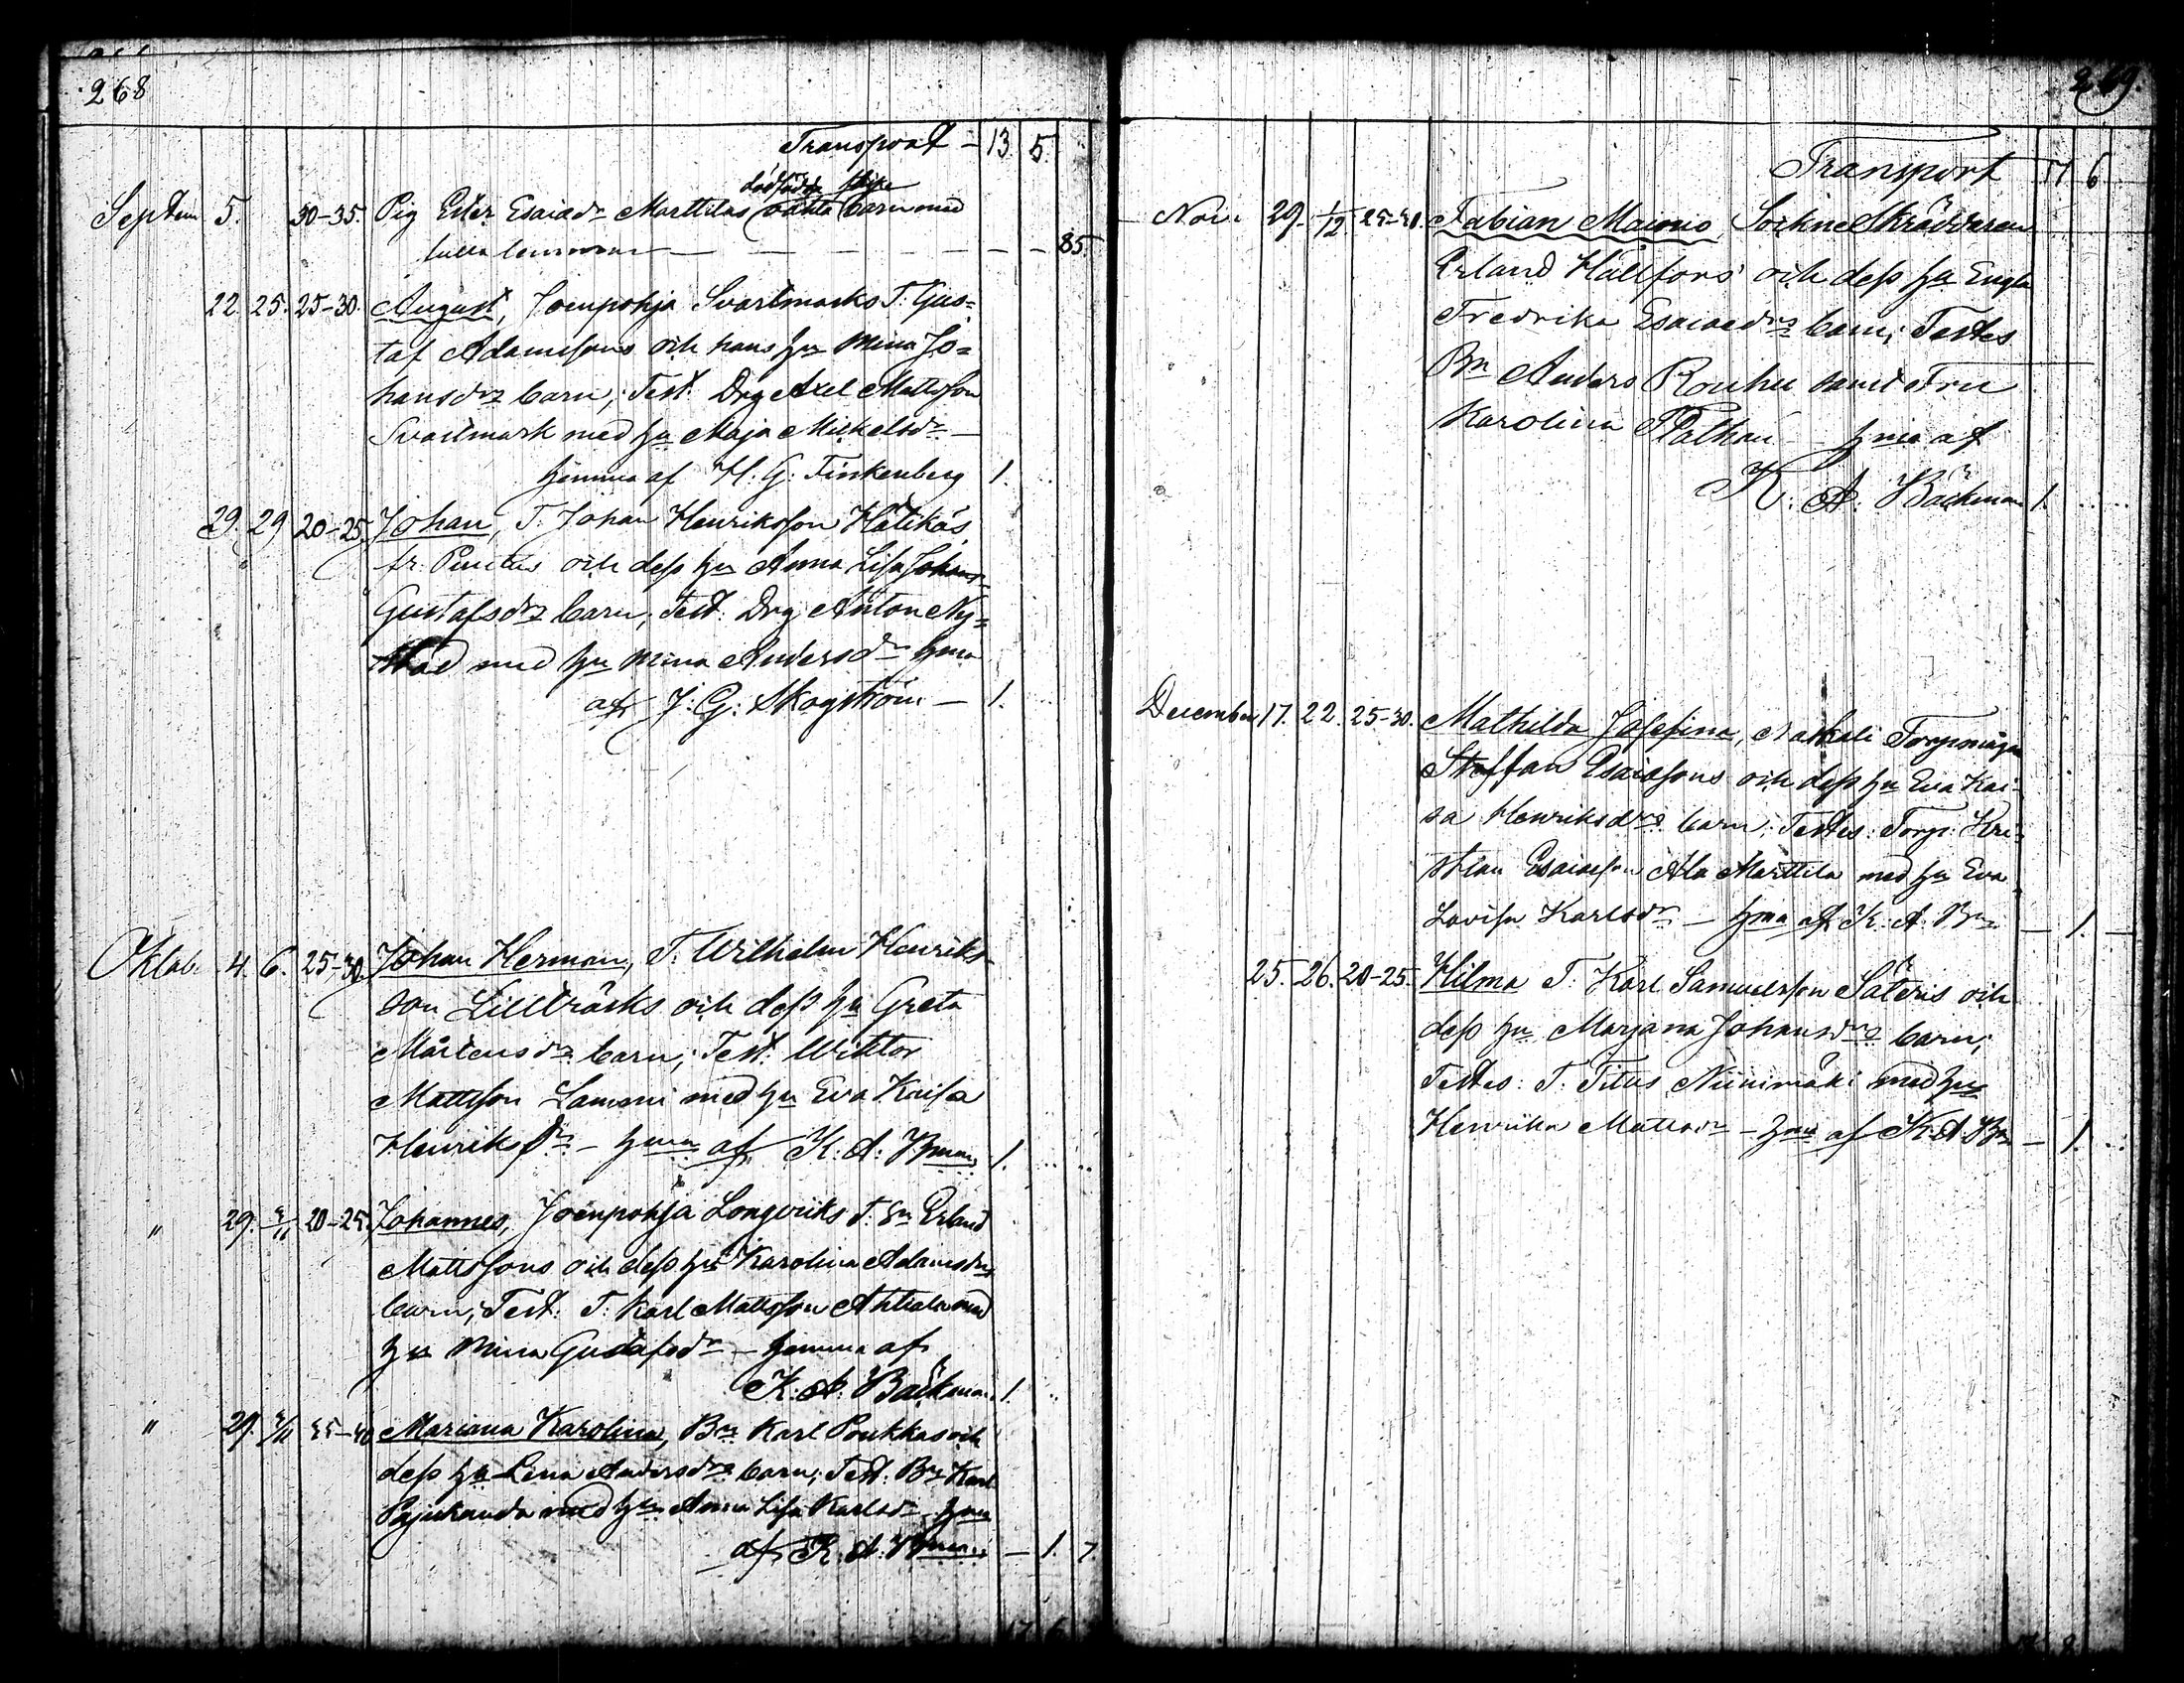 268
Transport - 13. 5.
dödfödde flicka
Septem 5. 30-35. Pig Ester Esaiædr Marttilas oäkta barn med
- - - - 85.
22. 25. 25-30. August, Joenpohja Svartmarks T: Gus=
taf Adamssons och hans hu Mina Jo=
hansdrs barn; Test: Drg Axel Mattsson
Svartmark med hu Maja Mickelsdr -
hemma af H. G. Finkenberg 1.
29. 29 20-25. Johan, T. Johan Henriksson Hätikäs
fr. och dess hu Anna Lisa Johans
Gustafsdrs barn; Test: Drg Anton Ny=
stad med hu Mina Andersdr hma
af J. G. Skogström - 1.
Oktob. 4. 6. 25-30. Johan Herman, T. Wilhelm Henriks
son Lillträsks och dess hu Greta
Mårtensdrs barn; Test: Wiktor
Mattsson Lammi med hu Eva Kaisa
Henriksdr - hma af K. A. Bman 1.
" 29. 3/11 20-25. Johannes, Joenpohja Longviiks T. Sn Erland
Mattssons och dess hu Karolina Adamsdrs
barn; Test: T. Karl Mattsson Ahtiala med
hu Mina Gustafsdr - hemma af
K. A. Bäckman 1.
" 29. 3/11 35-40 Mariana Karolina, Bn Karl Poukkas och
dess hu Lena Andersdrs barn; Test: Bn Karl
Pajukanda med hu Anna Lisa Karlsdr hma
af K. A. Bman - 1. 7.
17 6
269.
Transport 17 6
Nov. 29. 1/12. 25-30. Fabian Maimo Sockne Skräddaren
Erland Hällfors och dess hu Engla
Fredrika Esaiaedrs barn; Testes
Bn Anders Rouhu samt Fru
Karolina Palhan - hma af
K. A. Bäckman 1.
December 17. 22. 25-30. Mathilda Josefina, Naskali Torpmågen
Staffan Esaiasons och dess hu Eva Kai-
sa Henriksdrs barn; Testes: Torp. Kri-
stian Esaiasson Ala Marttila med hu Eva
Lovisa Karlsdr - hma af K. A. Bn - 1. -
25. 26. 20-25. Hilma T. Karl Samuelsson Säteris och
dess hu Marjana Johansdrs barn;
Testes: T. Titus Niinimäki med hu
Henrika Mattsdr - hma af K. A. Bn - 1.